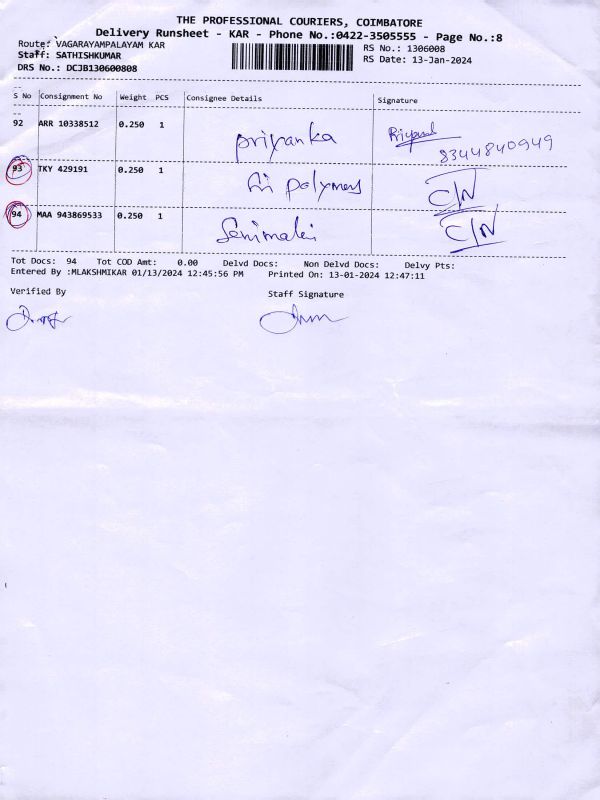 THE PROFESSIONAL COURIERS, COIMBATORE
Delivery Runsheet - KAR - Phone No.:0422-3505555 - Page No.:8
Route: VAGARAYAMPALAYAM KAR
RS No.: 1306008
Staff: SATHISHKUMAR
RS Date: 13-Jan-2024
DRS No.: DCJB130600808
S No Consignment No Weight PCS Consignee Details Signature
92 ARR 10338512 0.250 1 priyanka
8344840949
93 TKY 429191 0.250 1 polymers C/N
94 MAA 943869533 0.250 1 C/N
Tot Docs: 94 Tot COD Amt: 0.00 Delvd Docs: Non Delvd Docs: Delvy Pts:
Entered By :MLAKSHMIKAR 01/13/2024 12:45:56 PM Printed On: 13-01-2024 12:47:11
Verified By Staff Signature